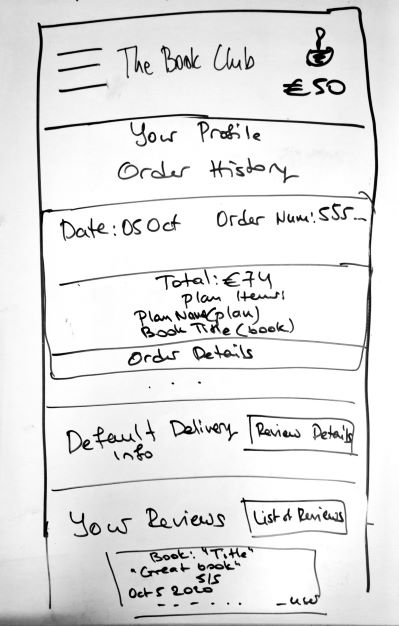 The Book Club
€50
Your Profile
Order History
Date: 05 Oct Order Num: 555...
Total: €74
Plan Items:
Plan Name (plan)
Book Title (book)
Order Details
. . .
Default Delivery Info
Review Details
Your Reviews
List of Reviews
Book: "Title"
"Great book"
5/5
Oct 5 2020